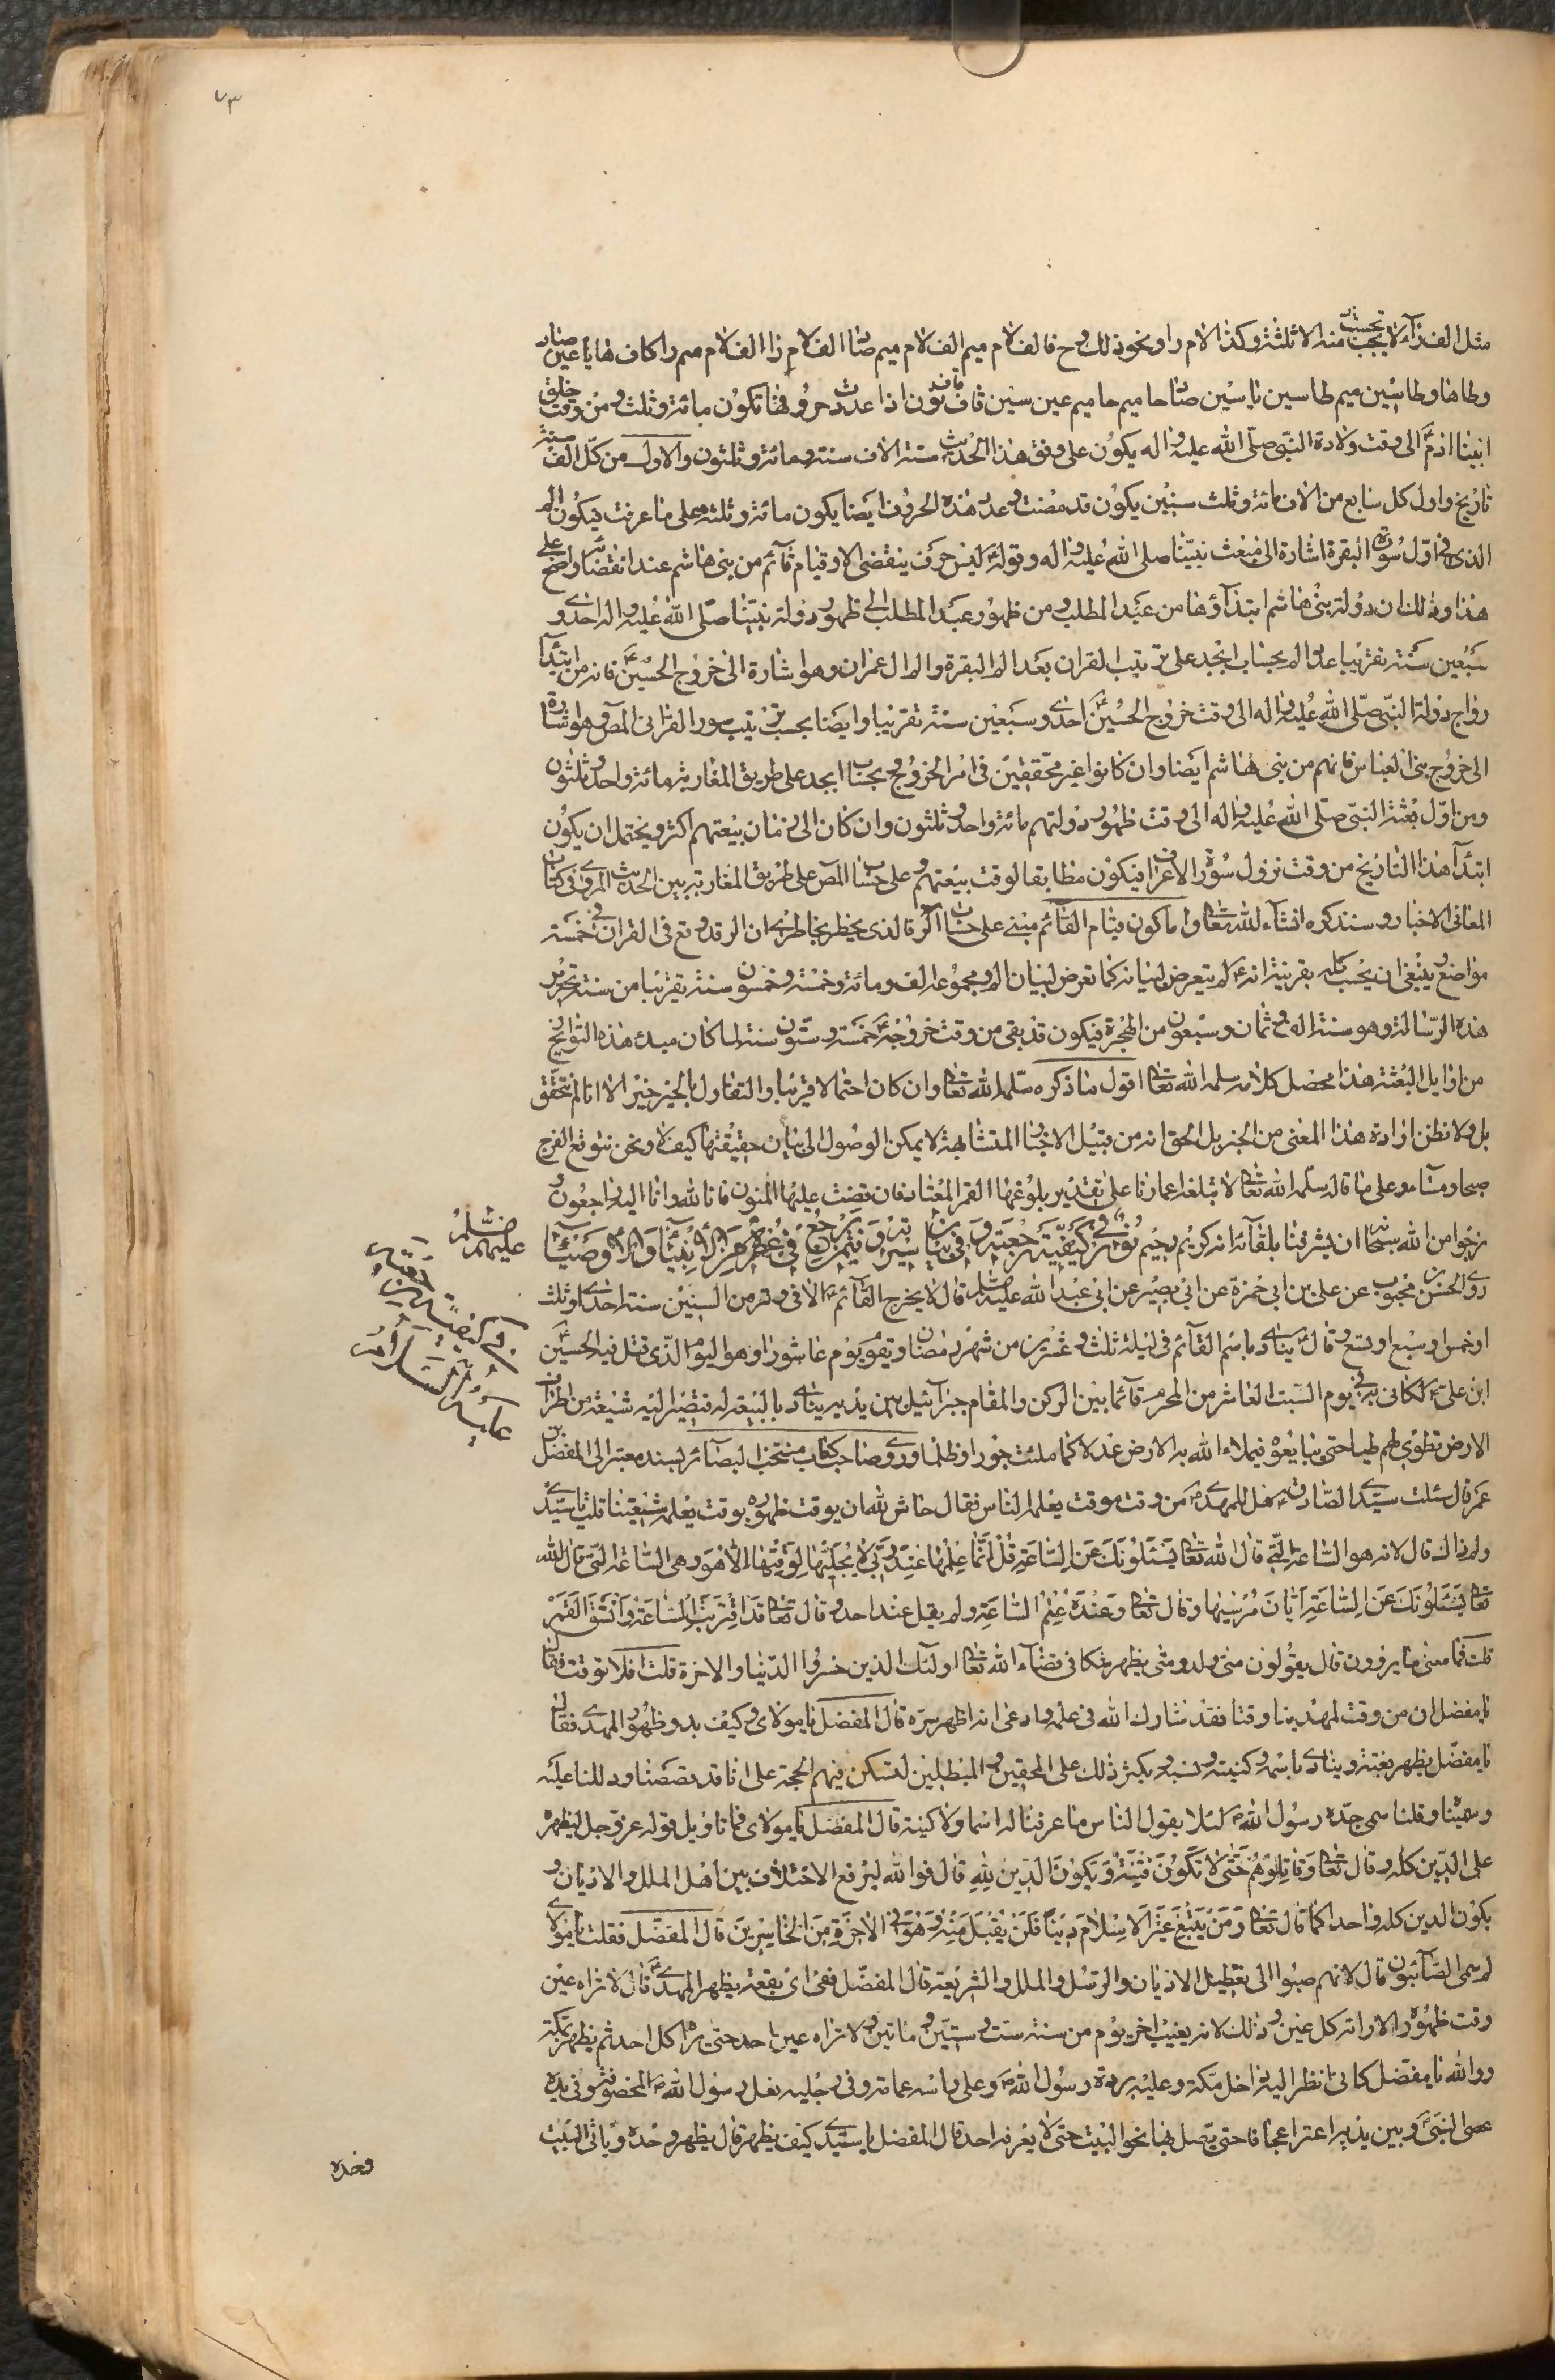 ٧٣
مثل الف را لا يحسب منه الا ثلثة وكذا لام را ونحو ذلك وح فالف لام ميم الف لام ميم صاد الف لام را الف لام ميم را كاف ها يا عين صاد
وطاها وطاسين ميم طاسين ياسين صاد حاميم حاميم عين سين قاف قاف نون اذا عددت حروفها تكون مائة وثلث ومن وقت خلق
ابينا ادم الى وقت ولادة النبي صلى الله عليه واله يكون على وفق هذا الحديث ستة الاف سنة ومائة وثلثون والاول من كل الف سنة
تاريخ واول كل سابع من الاف مائة وثلث سنين يكون قد مضت وعدد هذه الحروف ايضا يكون مائة وثلثة وعلى ما عرفت فيكون الم
الذي في اول سورة البقرة اشارة الى مبعث نبينا صلى الله عليه واله وقوله ليس حرف ينقضي الا وقيام قائم من بني هاشم عند انقضائه واضح على
هذا وذلك ان دولة بني هاشم ابتداؤها من عبد المطلب ومن ظهور عبد المطلب الى ظهور دولة نبينا صلى الله عليه واله احدى و
سبعين سنة تقريبا عدد الم بحساب ابجد على ترتيب القران بعد الم البقرة والم ال عمران وهو اشارة الى خروج الحسين فانه من ابتدآ
رواج دولة النبي صلى الله عليه واله الى وقت خروج الحسين احدى وسبعين سنة تقريبا وايضا بحسب ترتيب سور القران المص وهو اشارة
الى خروج بني العباس فانهم من بني هاشم ايضا وان كانوا غير محققين في امر الخروج وبحساب ابجد على طريق المغاربة مائة واحد وثلثون
ومن اول بعثة النبي صلى الله عليه واله الى وقت ظهور دولتهم مائة واحد وثلثون وان كان الى زمان بيعتهم اكثر ويحتمل ان يكون
ابتدآ هذا التاريخ من وقت نزول سورة الاعراف فيكون مطابقا لوقت بيعتهم وعلى حساب المص على طريق المغاربة يبين الحديث المروي في كتاب
المعاني الاخبار وسنذكره انشآء الله تعا واما كون قيام القائم مبني على حساب الر فالذي يخطر بخاطري ان الر قد وقع في القران في خمسة
مواضع ينبغي ان يحسب كله بقرينة انه لم يتعرض لبيانه كما تعرض لبيان الم ومجموعه الف ومائة وخمسة وخمسون سنة تقريبا من سنة تحرير
هذه الرسالة وهو سنة الف وثمان وسبعون من الهجرة فيكون قد بقى من وقت خروجه خمسة وستون سنة لما كان مبدء هذه التواريخ
من اوايل البعثة هذا محصل كلامه سلمه الله تعا اقول ما ذكره سلمه الله تعا وان كان احتمالا قريبا والتفاول بالخير خير الا انا لم نتحقق
بل ولا نظن ارادة هذا المعنى من الخبر بل الحق انه من قبيل الاخبار المتشابهة لا يمكن الوصول الى بيان حقيقتها كيف لا ونحن نتوقع الفرج
صباحا ومساء وعلى ما قاله سلمه الله تعا لا تبلغه اعمارنا على تقدير بلوغها العمر المعتاد فان قضت عليها المنون فانا لله وانا اليه راجعون و
نرجوا من الله سبحانه ان يشرفنا بلقآئه انه كريم رحيم نور في كيفية رجعته و في بيان سيرته و فيمن يرجع في عصره من الانبيآء والاوصيآء
عليهم السلم
روى الحسن بن محبوب عن علي بن ابي حمزة عن ابي بصير عن ابي عبد الله عليه السلم قال لا يخرج القآئم الا في وتر من السنين سنة احدى او ثلث
او خمس او سبع او تسع وقال ينادى باسم القآئم في ليلة ثلث وعشرين من شهر رمضان ويقوم يوم عاشورا وهو اليوم الذي قتل فيه الحسين
ابن علي لكاني به في يوم السبت العاشر من المحرم قآئما بين الركن والمقام جبرآئيل بين يديه ينادى بالبيعة له فتصير اليه شيعته من اطراف
الارض تطوى لهم طيا حتى يبايعوه فيملاء الله به الارض عدلا كما ملئت جورا وظلما وروى صاحب كتاب منتخب البصآئر بسنده معتبر الى المفضل بن
عمر قال سئلت سيدي الصادق هل للمهدي من وقت موقت يعلمه الناس فقال حاش لله ان يوقت ظهوره بوقت يعلمه شيعتنا قلت يا سيدي
ولم ذاك قال لانه هو الساعة التي قال الله تعا يسئلونك عن الساعة قل انما علمها عند ربي لا يجليها لوقتها الا هو وهي الساعة التي قال الله
تعا يسئلونك عن الساعة ايان مرسيها وقال تعا وعنده علم الساعة ولم يقل عند احد وقال تعا قد اقتربت الساعة وانشق القمر
قلت فما معنى ما يرون قال يقولون متى ولد ومتى يظهر شكا في قضآء الله تعا اولئك الذين خسروا الدنيا والاخرة قلت افلا توقت فقال
يا مفضل ان من وقت لمهدينا وقتا فقد شارك الله في علمه وادعى انه اظهر سره قال المفضل يا مولاى وكيف بدو ظهور المهدي فقال
يا مفضل يظهر بغتة وينادى باسمه وكنيته ونسبه ويكثر ذلك على المحقين والمبطلين لتسكن فيهم الحجة على انا قد قصصنا ودللنا عليه
وسمينا وقلنا سمى جده رسول الله لئلا يقول الناس ما عرفنا له اسما ولا كنية قال المفضل يا مولاى فما تاويل قوله عز وجل ليظهره
على الدين كله وقال تعا وقاتلوهم حتى لا تكون فتنة ويكون الدين لله قال فوالله ليرفع الاختلاف بين اهل الملل والاديان و
يكون الدين كله واحدا كما قال تعا ومن يبتغ غير الاسلام دينا فلن يقبل منه وهو في الاخرة من الخاسرين قال المفضل فقلت يا مولاى
لم سمى الصآبئون قال لانهم صبوا الى تعطيل الاديان والرسل والملل والشريعة قال المفضل ففي اى بقعة يظهر المهدي قال لا تراه عين
وقت ظهوره الا راته كل عين وذلك لانه يغيب اخر يوم من سنة ست وستين وماتين ولا تراه عين احد حتى يراه كل احد ثم يظهر بمكة
ووالله يا مفضل كاني انظر اليه داخل مكة وعليه بردة رسول الله وعلى راسه عمامة وفي رجليه نعل رسول الله المخصوفة وفي يده
عصى النبي وبين يديه اعنزا عجافا حتى يصل بها نحو البيت حتى لا يعرفه احد قال المفضل يا سيدي كيف يظهر قال يظهر وحده وياتى البيت
وحده